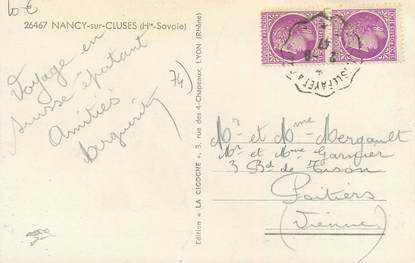 10€
26467 NANCY-sur-CLUSES (Hte-Savoie)
Voyage en
suisse épatant
Amitiés
74)
Edition « LA CIGOGNE », 3, rue des 4-Chapeaux, LYON (Rhône)
Mr et Mme Mergault
Mr et Mme Garnier
3 Bd de Tison
Poitiers
(Vienne)